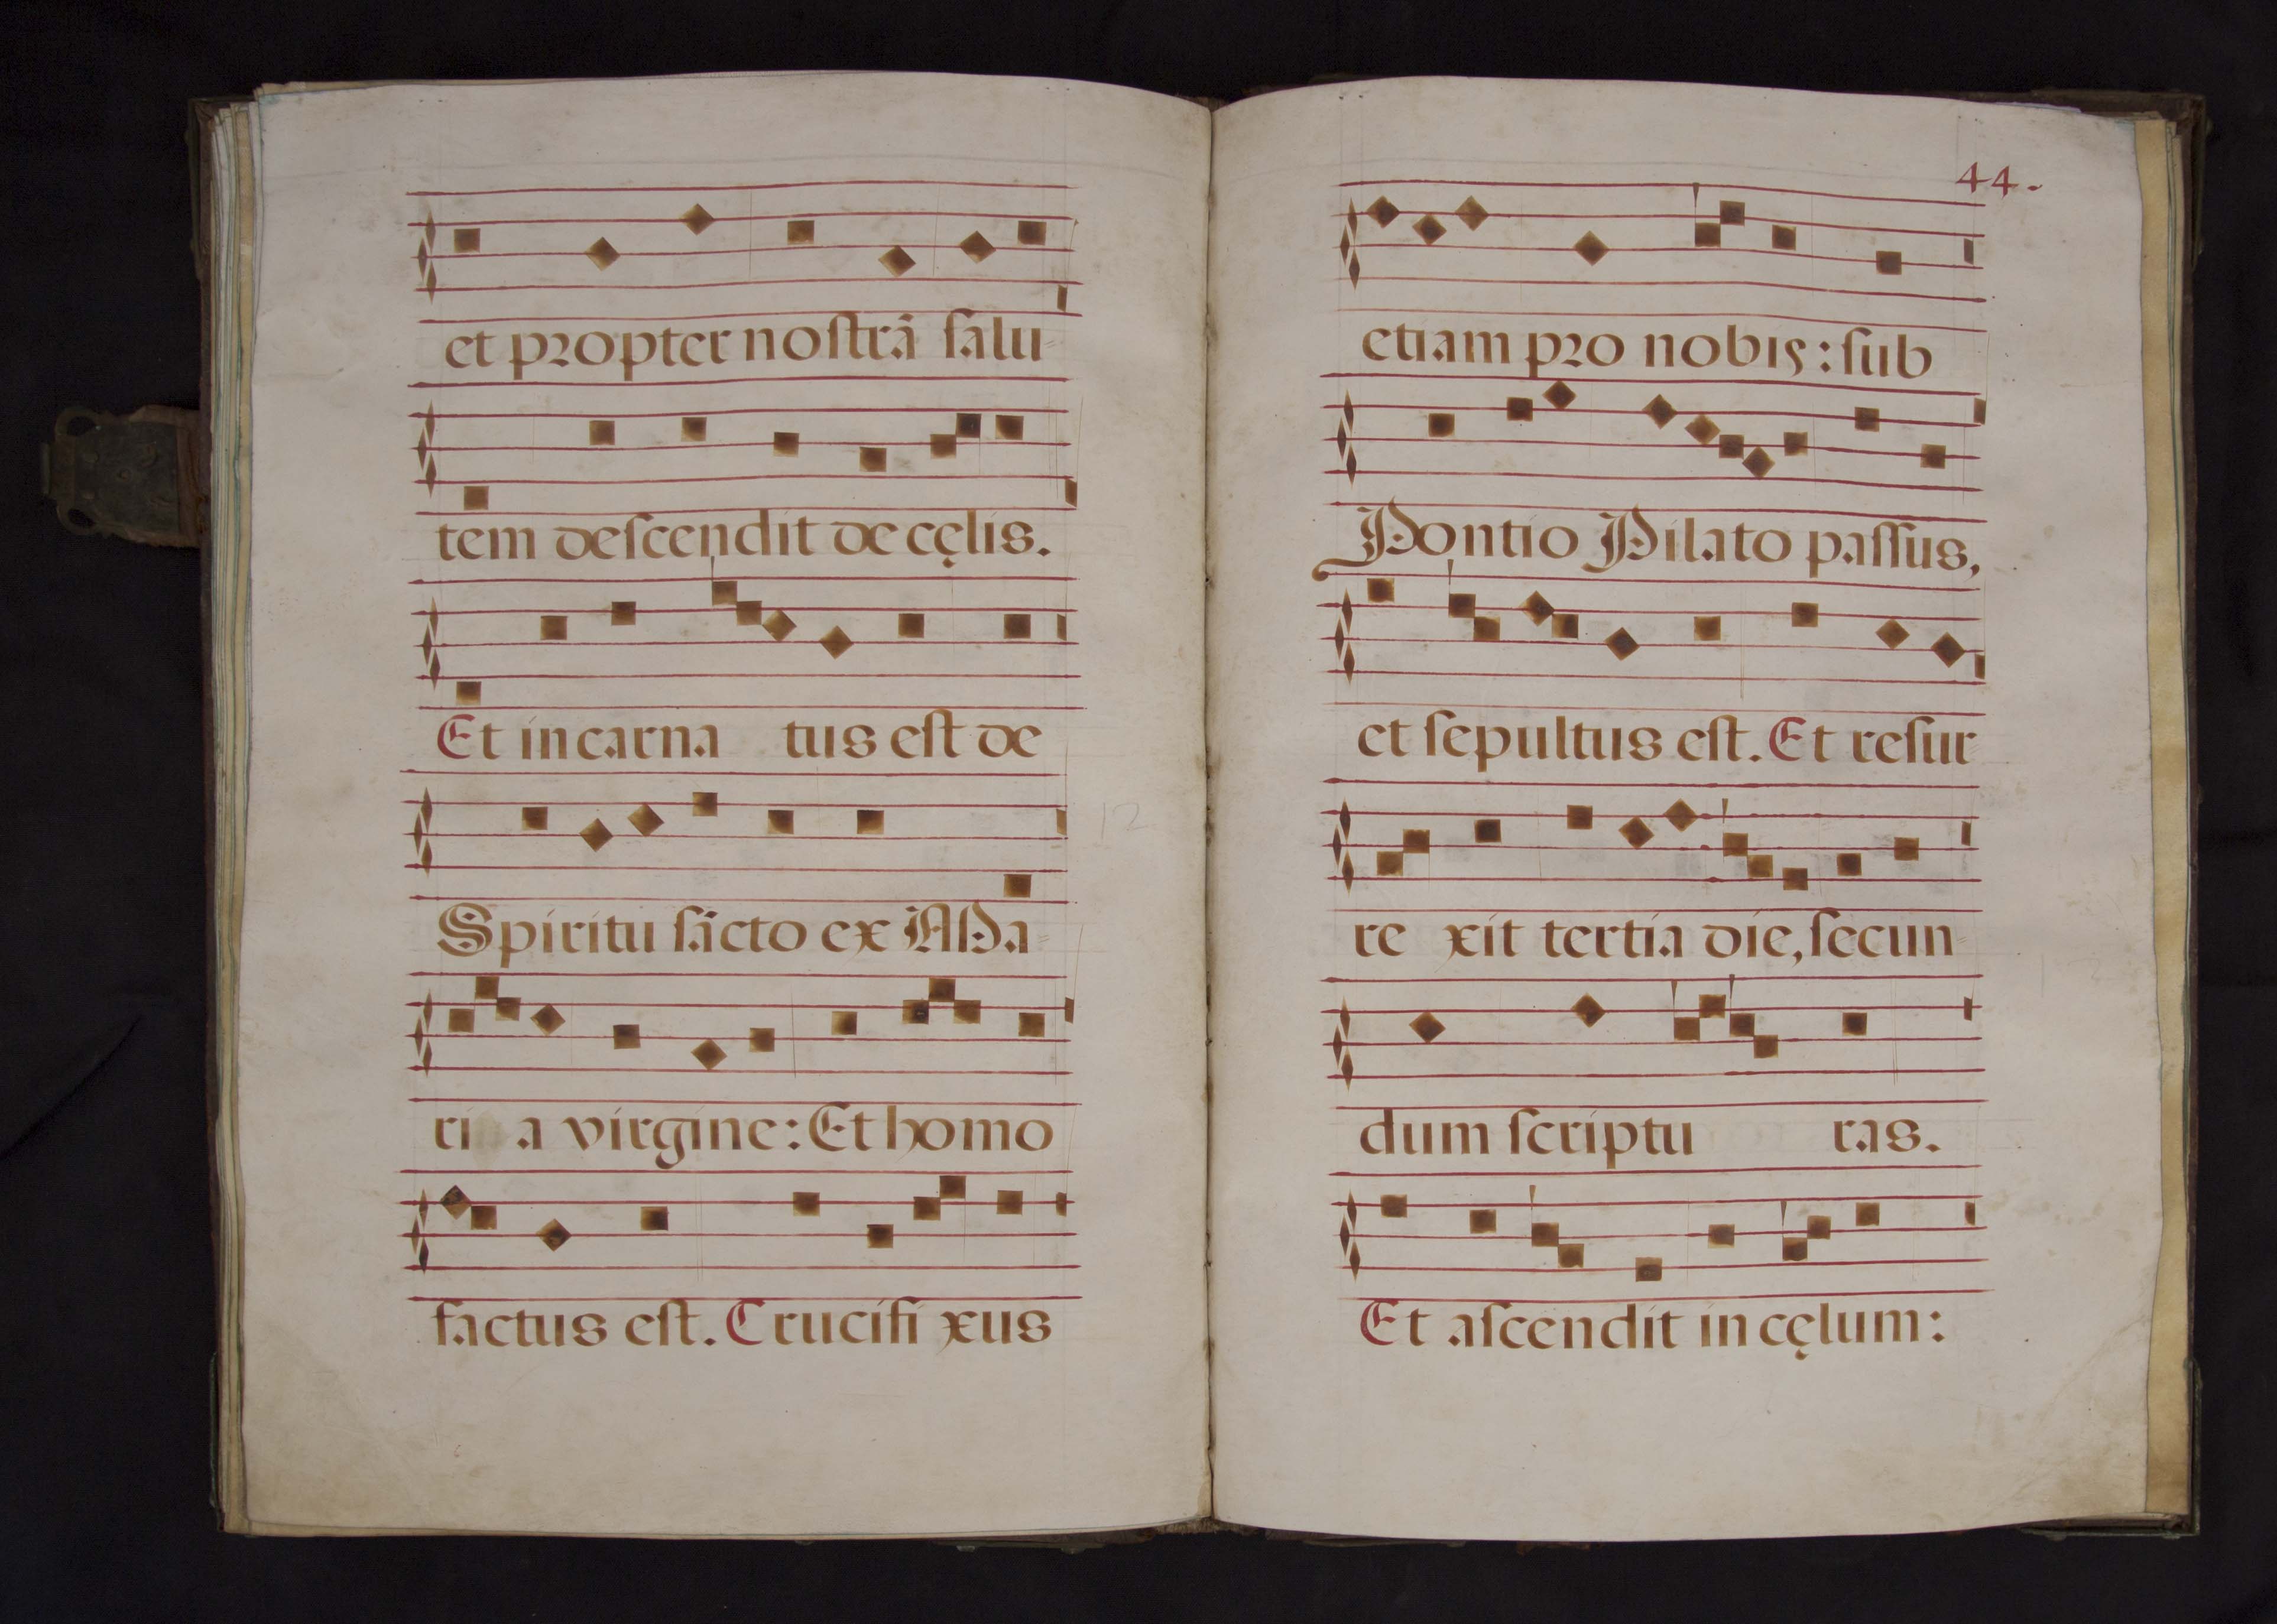 et propter nostrã salu-
tem descendit de cęlis.
Et incarna tus est de
Spiritu sãcto ex Ma-
ri a virgine: Et homo
factus est. Crucifi xus
12
44.
etiam pro nobis: sub
Pontio Pilato passus,
et sepultus est. Et resur-
re xit tertia die, secun-
dum scriptu ras.
Et ascendit in cęlum: